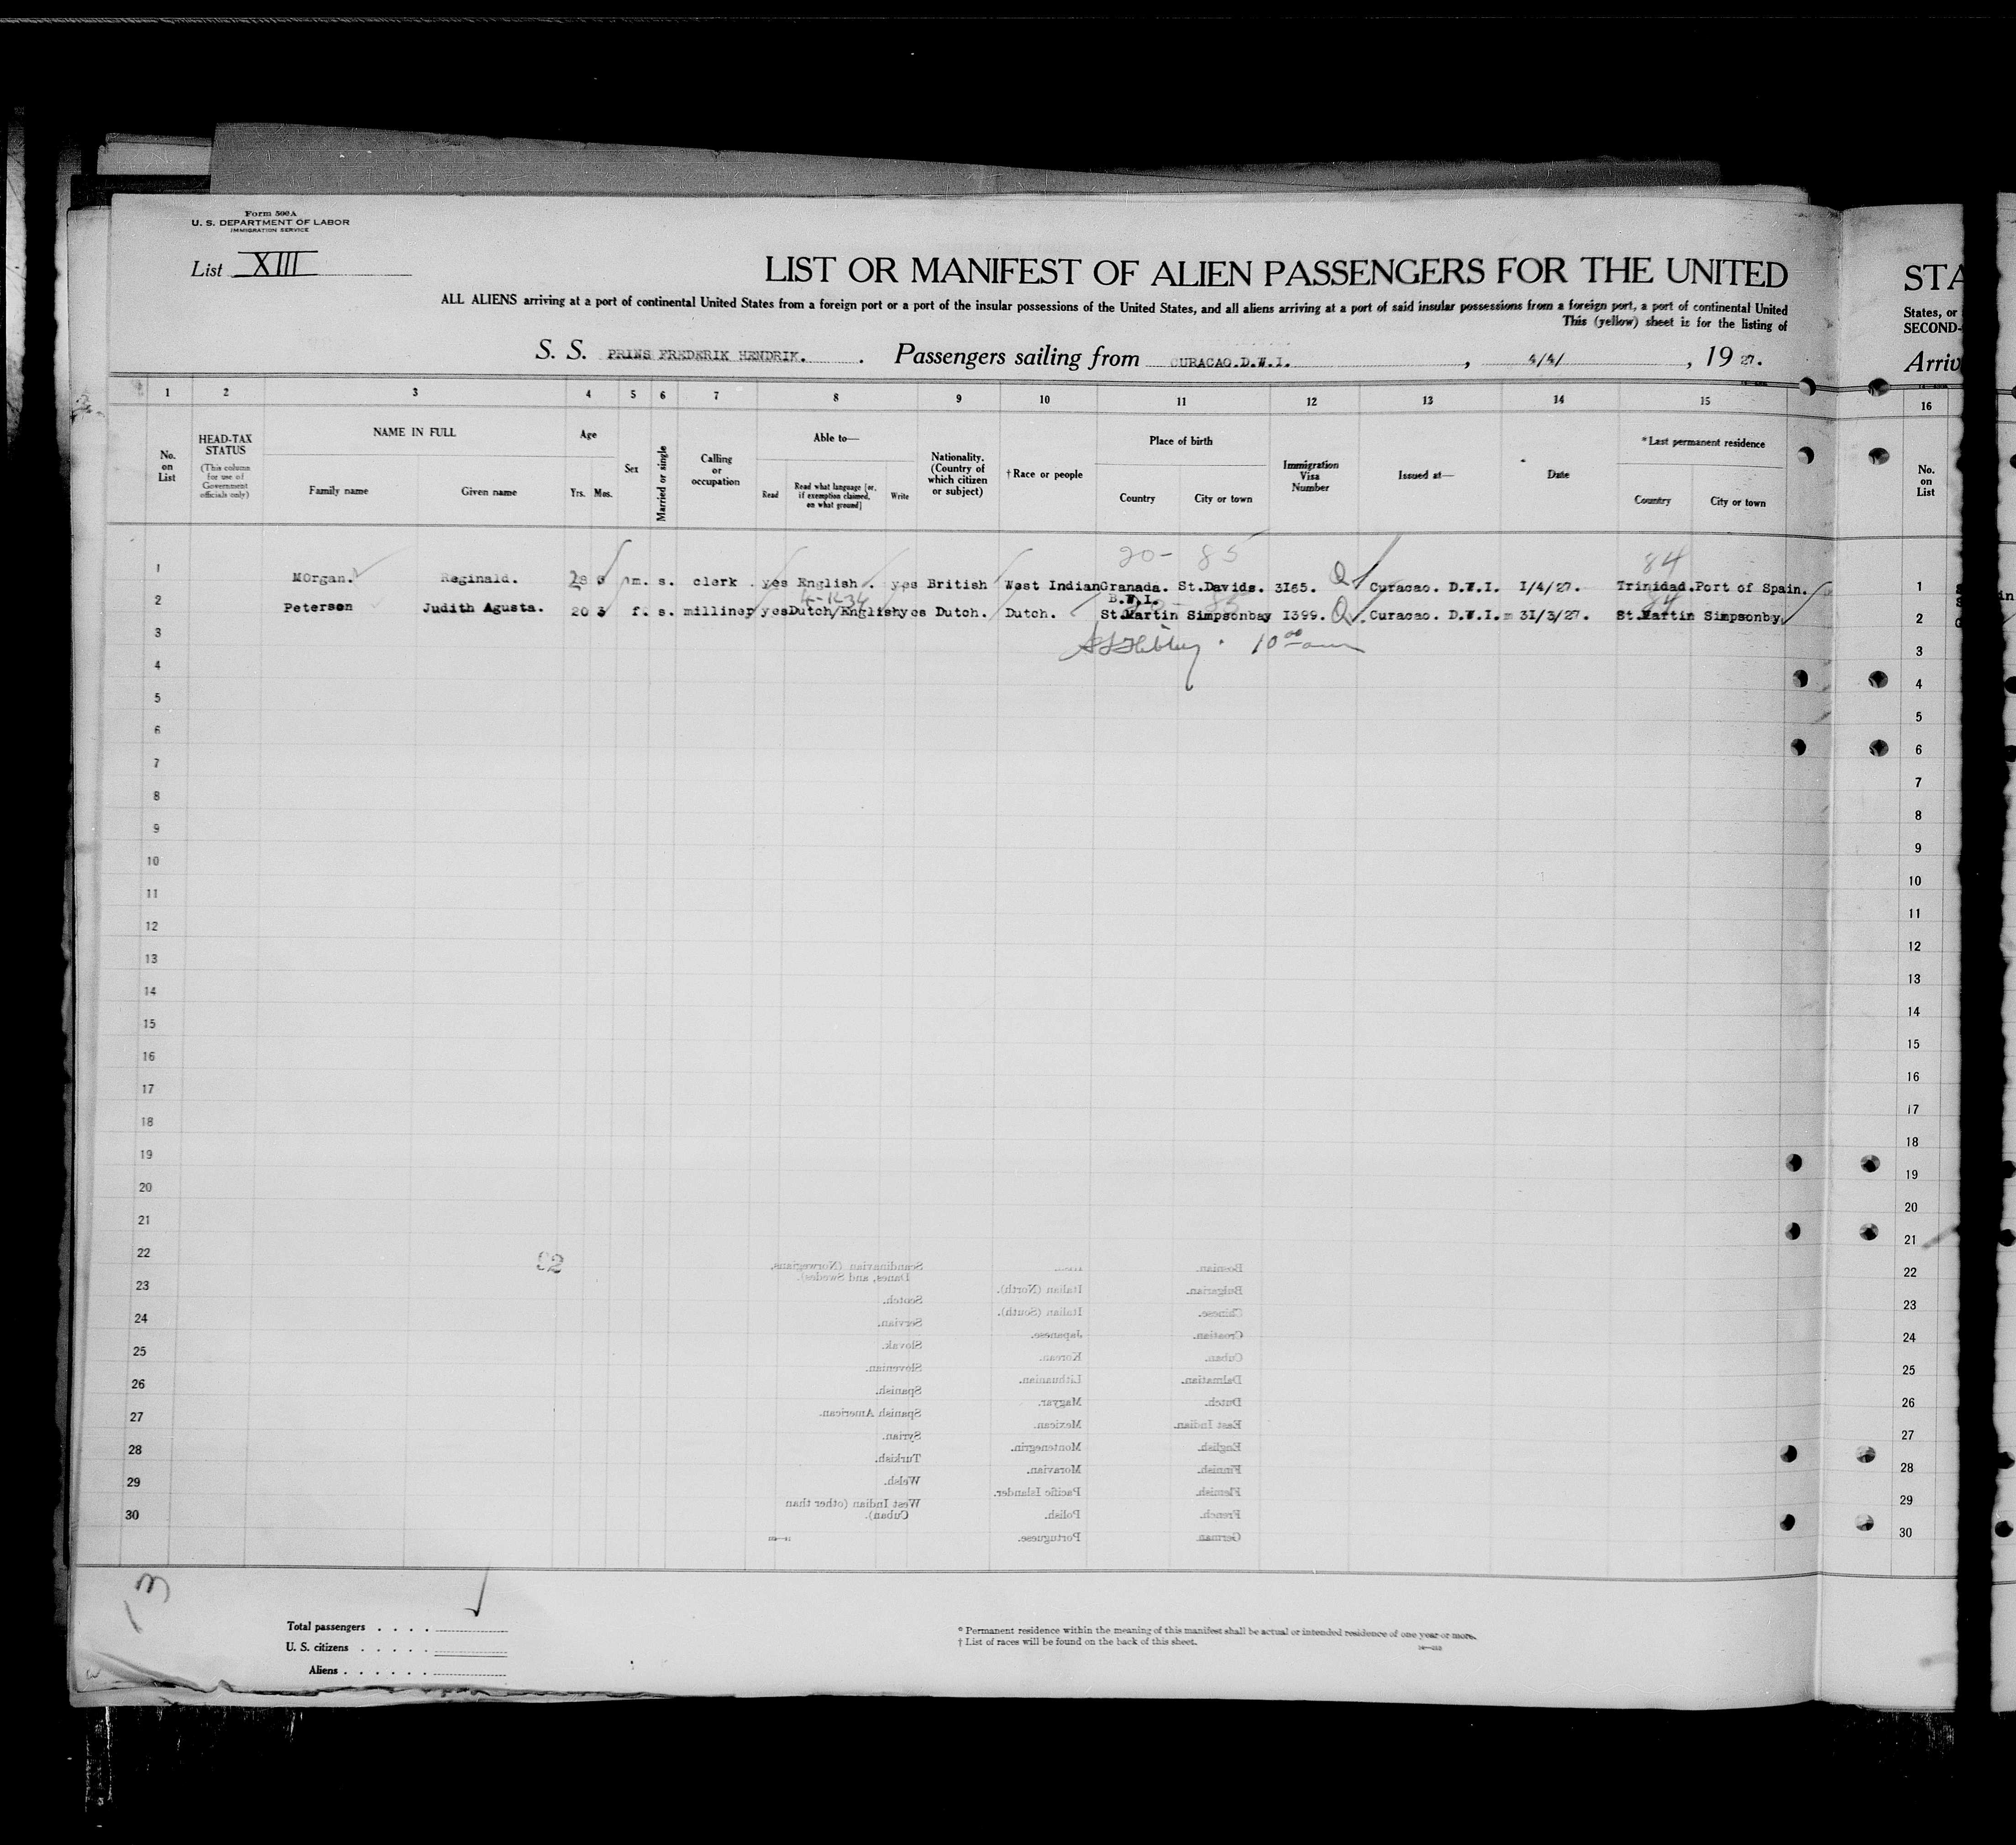 Form 500A
U. S. DEPARTMENT OF LABOR
IMMIGRATION SERVICE
List XIII
LIST OR MANIFEST OF ALIEN PASSENGERS FOR THE UNITED
ALL ALIENS arriving at a port of continental United States from a foreign port or a port of the insular possessions of the United States, and all aliens arriving at a port of said insular possessions from a foreign port, a port of continental United
This (yellow) sheet is for the listing of
S. S. PRINS FREDERIK HENDRIK. . Passengers sailing from CURACAO.D.W.I. , 4/4/ , 19 27.
STA
States, or
SECOND-
Arriv
1 2 3 4 5 6 7 8 9 10 11 12 13 14 15
16
No. on List
HEAD-TAX STATUS
(This column for use of Government officials only)
NAME IN FULL
Family name Given name
Age
Yrs. Mos.
Sex
Married or single
Calling or occupation
Able to—
Read
Read what language [or, if exemption claimed, on what ground]
Write
Nationality. (Country of which citizen or subject)
† Race or people
Place of birth
Country City or town
Immigration Visa Number
Issued at—
Date
*Last permanent residence
Country City or town
No. on List
20- 85 84
1 MOrgan. Reginald. 28 m. s. clerk . yes English . yes British West Indian Granada. St.Davids. 3I65. Q Curacao. D.W.I. I/4/27. Trinidad.Port of Spain. 1
B.W.I.
2 Peterson Judith Agusta. 20 3 f. s. milliner yes Dutch/English yes Dutch. Dutch. St.Martin Simpsonbay I399. Q. Curacao. D.W.I. 3I/3/27. St.Martin Simpsonby 2
10 00 am
3 3
4 4
5 5
6 6
7 7
8 8
9 9
10 10
11 11
12 12
13 13
14 14
15 15
16 16
17 17
18 18
19 19
20 20
21 21
22 22
23 23
24 24
25 25
26 26
27 27
28 28
29 29
30 30
Scandinavian (Norwegians, Danes, and Swedes).
Scotch.
Servian.
Slovak.
Slovenian.
Spanish.
Spanish American.
Syrian.
Turkish.
Welsh.
West Indian (other than Cuban).
Italian (North).
Italian (South).
Japanese.
Korean.
Lithuanian.
Magyar.
Mexican.
Montenegrin.
Moravian.
Pacific Islander.
Polish.
Portuguese.
Bosnian.
Bulgarian.
Chinese.
Croatian.
Cuban.
Dalmatian.
Dutch.
East Indian.
English.
Finnish.
Flemish.
French.
German
13
Total passengers . . . .
U. S. citizens . . . . .
Aliens . . . . . .
* Permanent residence within the meaning of this manifest shall be actual or intended residence of one year or more.
† List of races will be found on the back of this sheet.